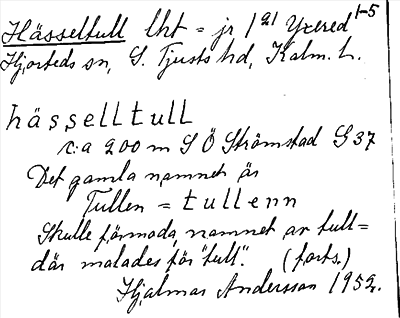 Hässeltull lht = jr 1 21 Yxered 1-5
Hjorteds sn, S. Tjusts hd, Kalm. L.
hässelltull
c:a 200 m S Ö Strömstad S 37
Det gamla namnet är
Tullen = tullenn
Skulle förmoda, namnet av tull=
där malades för "tull". (forts.)
Hjalmar Andersson 1952.